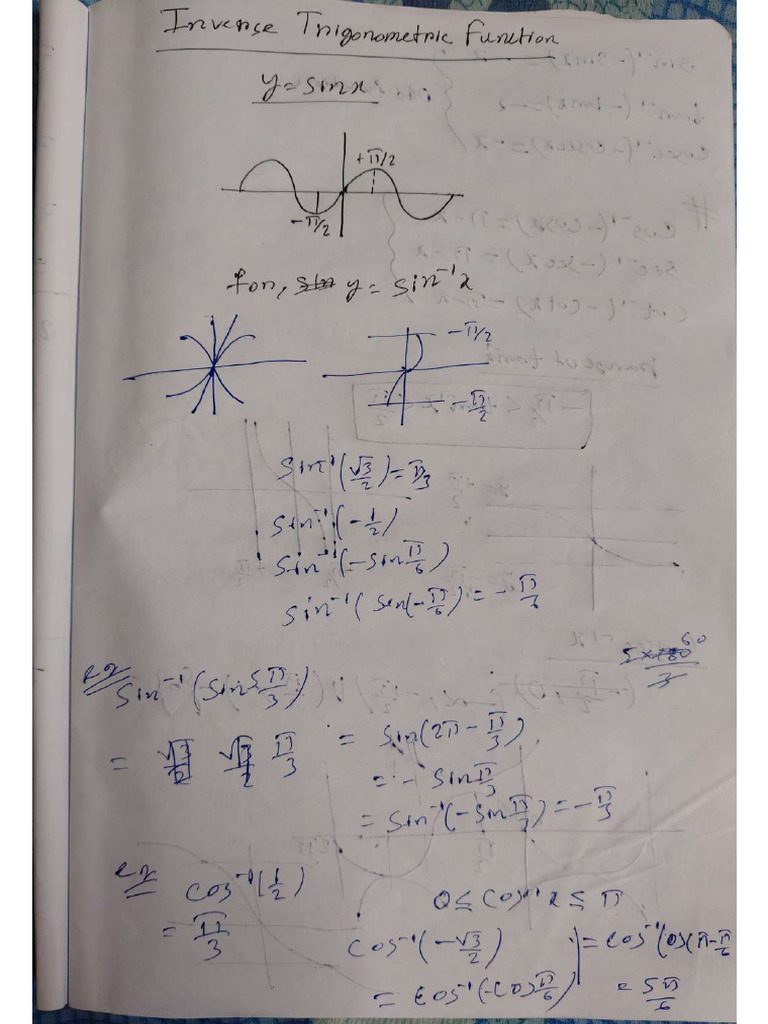 Inverse Trigonometric Function
y = sinx
+π/2
-π/2
for, y = sin⁻¹x
-π/2
-π/2
sin⁻¹(√3/2) = π/3
sin⁻¹(-1/2)
sin⁻¹(-sin π/6)
sin⁻¹(sin(-π/6) = -π/6
60
5×180/3
ex
sin⁻¹(sin 5π/3)
= √3/2 √3/2 π/3
= sin(2π - π/3)
= - sin π/3
= sin⁻¹(-sin π/3) = -π/3
ex
cos⁻¹(1/2)
= π/3
0 ≤ cos⁻¹x ≤ π
cos⁻¹(-√3/2)
= cos⁻¹(-cos π/6)
= cos⁻¹(cos(π-π/6
= 5π/6